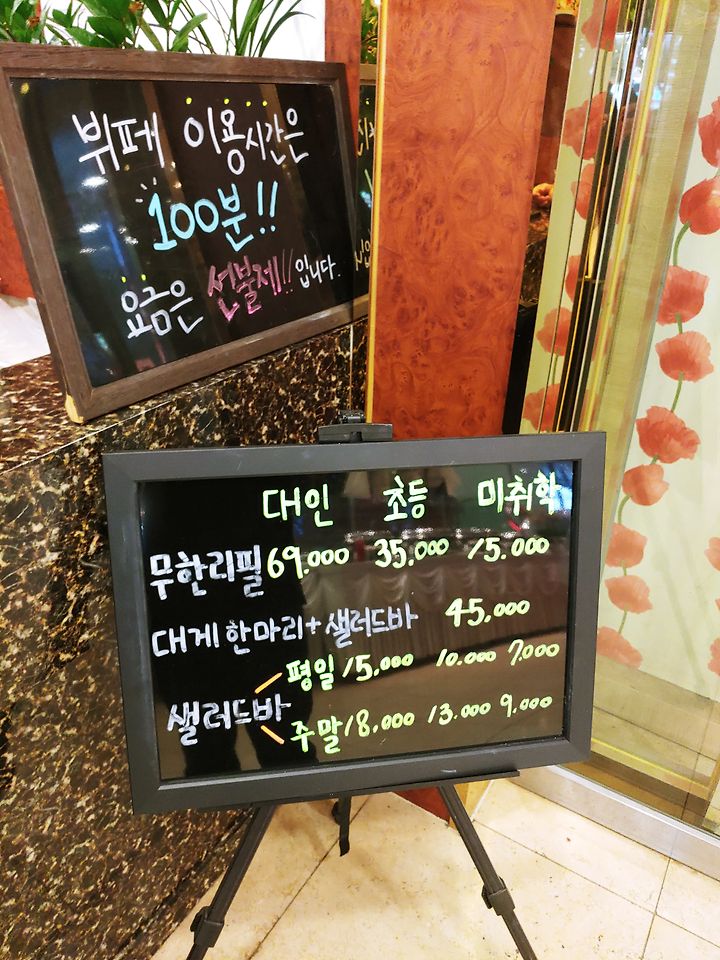 뷔페 이용시간은
100분!!
요금은 선불제!! 입니다.
대인 초등 미취학
무한리필 69.000 35.000 15.000
대게 한마리+샐러드바 45,000
평일 15,000 10.000 7.000
샐러드바
주말 18.000 13.000 9.000